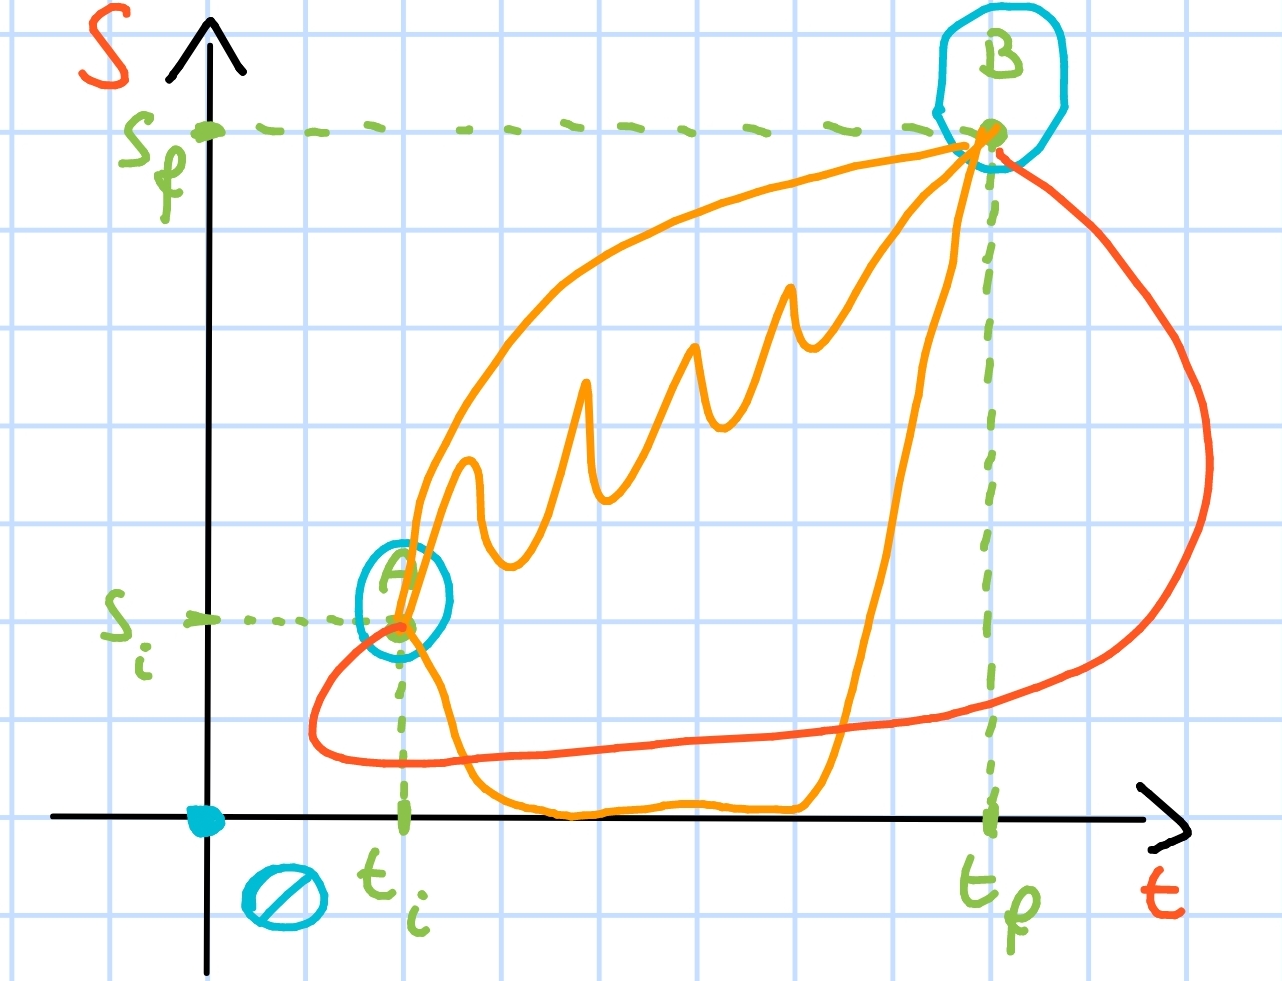 S
B
S_f
A
S_i
0
t_i
t_f
t